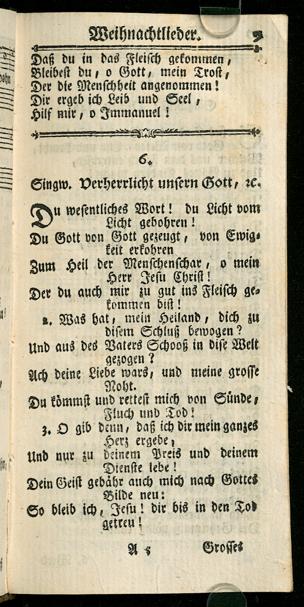 Weihnachtlieder. 9
Daß du in das Fleisch gekommen,
Bleibest du, o Gott, mein Trost,
Der die Menschheit angenommen!
Dir ergeb ich Leib und Seel,
Hilf mir, o Immanuel!
6.
Singw. Verherrlicht unsern Gott, ꝛc.
Du wesentliches Wort! du Licht vom
Licht gebohren!
Du Gott von Gott gezeugt, von Ewig-
keit erkohren
Zum Heil der Menschenschar, o mein
Herr Jesu Christ!
Der du auch mir zu gut ins Fleisch ge-
kommen bist!
2. Was hat, mein Heiland, dich zu
disem Schluß bewogen?
Und aus des Vaters Schooß in dise Welt
gezogen?
Ach deine Liebe wars, und meine grosse
Noht.
Du kömmst und rettest mich von Sünde,
Fluch und Tod!
3. O gib denn, daß ich dir mein ganzes
Herz ergebe,
Und nur zu deinem Preis und deinem
Dienste lebe!
Dein Geist gebähr auch mich nach Gottes
Bilde neu:
So bleib ich, Jesu! dir bis in den Tod
getreu!
A 5 Grosses